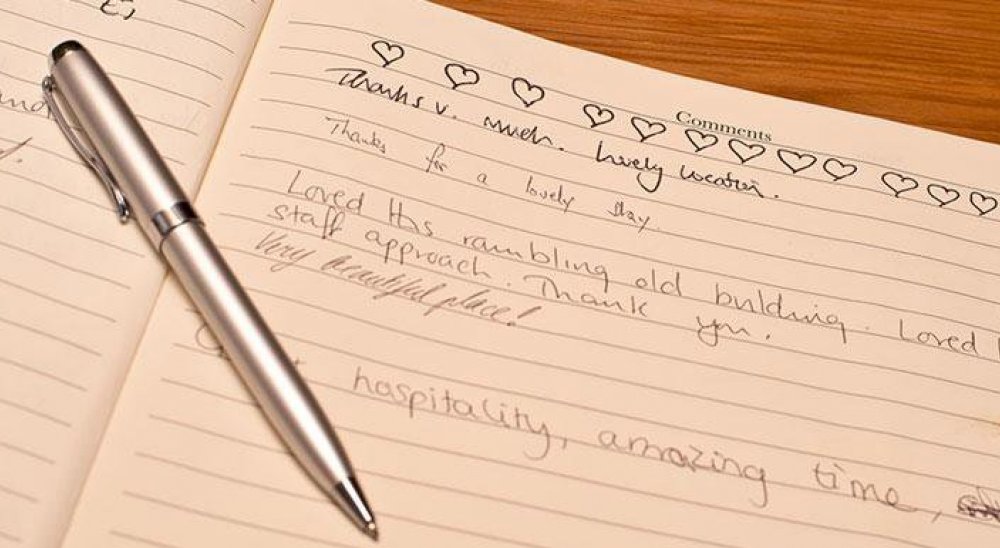 Comments
Thanks v. much. lovely location.
Thanks for a lovely stay.
Loved this rambling old building. Loved
staff approach. Thank you.
Very beautiful place!
hospitality, amazing time,